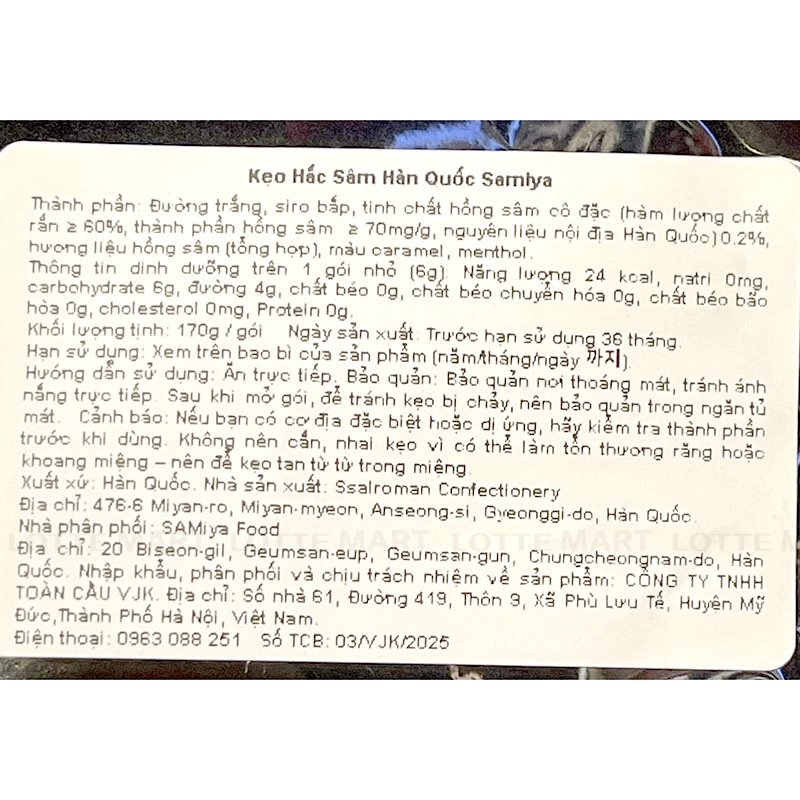 Kẹo Hắc Sâm Hàn Quốc Samiya
Thành phần: Đường trắng, siro bắp, tinh chất hồng sâm cô đặc (hàm lượng chất
rắn ≥ 60%, thành phần hồng sâm ≥ 70mg/g, nguyên liệu nội địa Hàn Quốc) 0.2%,
hương liệu hồng sâm (tổng hợp), màu caramel, menthol.
Thông tin dinh dưỡng trên 1 gói nhỏ (6g): Năng lượng 24 kcal, natri 0mg,
carbohydrate 6g, đường 4g, chất béo 0g, chất béo chuyển hóa 0g, chất béo bão
hòa 0g, cholesterol 0mg, Protein 0g.
Khối lượng tịnh: 170g / gói Ngày sản xuất: Trước hạn sử dụng 36 tháng.
Hạn sử dụng: Xem trên bao bì của sản phẩm (năm/tháng/ngày 까지).
Hướng dẫn sử dụng: Ăn trực tiếp. Bảo quản: Bảo quản nơi thoáng mát, tránh ánh
nắng trực tiếp. Sau khi mở gói, để tránh kẹo bị chảy, nên bảo quản trong ngăn tủ
mát. Cảnh báo: Nếu bạn có cơ địa đặc biệt hoặc dị ứng, hãy kiểm tra thành phần
trước khi dùng. Không nên cắn, nhai kẹo vì có thể làm tổn thương răng hoặc
khoang miệng – nên để kẹo tan từ từ trong miệng.
Xuất xứ: Hàn Quốc. Nhà sản xuất: Ssalroman Confectionery
Địa chỉ: 476-6 Miyan-ro, Miyan-myeon, Anseong-si, Gyeonggi-do, Hàn Quốc.
Nhà phân phối: SAMiya Food
LOTTE MART LOTTE MART LOTTE MART LOTTE M
Địa chỉ: 20 Biseon-gil, Geumsan-eup, Geumsan-gun, Chungcheongnam-do, Hàn
Quốc. Nhập khẩu, phân phối và chịu trách nhiệm về sản phẩm: CÔNG TY TNHH
TOÀN CẦU VJK. Địa chỉ: Số nhà 61, Đường 419, Thôn 9, Xã Phù Lưu Tế, Huyện Mỹ
Đức,Thành Phố Hà Nội, Việt Nam.
Điện thoại: 0963 088 251 Số TCB: 03/VJK/2025